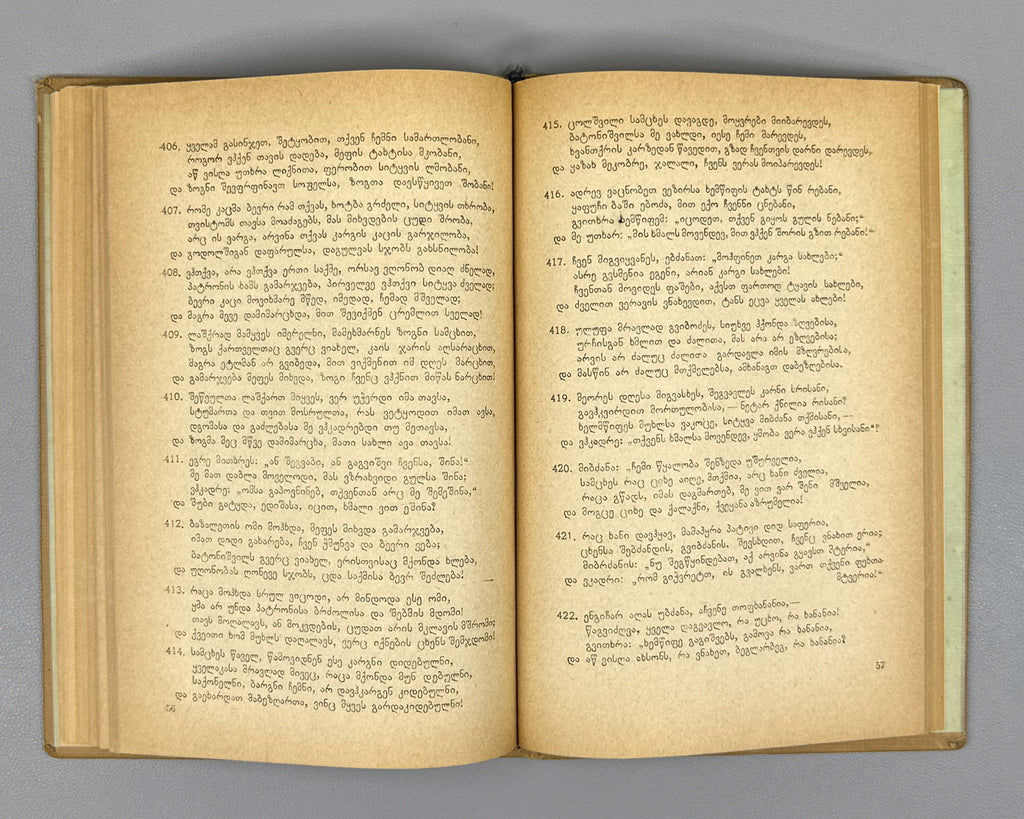 406. ყველამ გასინჯეთ, შეტყობით, თქვენ ჩემნი სამართლობანი,
როგორ ვჰქენ თავის დადება, მეფის ტახტისა მკობანი,
აწ ვისღა უთხრა ლიქნითა, ფერობით სიტყვის ლმობანი,
და ზოგნი შევფრფინავთ სოფელსა, ზოგთა დავსწყივეთ შობანი!
407. რომე კაცმა ბევრი რამ თქვას, ხოტბა გრძელი, სიტყვის თხრობა,
თვისტომს თავსა მოაძაგებს, მას მიხვდების ცუდი შრობა,
არც ის ვარგა, არვინა თქვას კარგის კაცის გარჯილობა,
და გოდოლშიგან დაფარულსა, დაგულვას სჯობს გახსნილობა!
408. ვჰთქვა, არა ვჰთქვა ერთი საქმე, ორსავ ვღონობ დიაღ ძნელად,
პატრონის ხამს გამარჯვება, პირველვე ვჰთქვი სიტყვა ძველად;
ბევრი კაცი მოვიხმარე მწედ, იმედად, ჩემად მშველად;
და მაგრა მევე დამიმარცხდა, მით შევიქმენ ცრემლით სველად!
409. ლაშქრად მამყვეს იმერელნი, მამეხმარნეს ზოგნი სამცხით,
ზოგს ქართველთაც გვერც ვიახელ, კაის ჯარის აღსარაცხით,
მაგრა ეტლმან არ გვიბედა, მით ვიქმენით იმ დღეს მარცხით,
და გამარჯვება მეფეს მიხვდა, ზოგი ჩვენც ვჰქნით მიწას ნარცხით!
410. შეწეულთა ლაშქართ მიყვეს, ვერ უქერდი იმა თავსა,
სტუმართა და თვით მოსრულთა, რას ვეტყოდით იმათ ავსა,
დგომასა და გაძლებასა მე ვჰკადრებდი თუ მეთავსა,
და ზოგმა მეც მწვე დამიმარცხა, მათი სახლი ავა თავსა!
411. ეგრე მითხრეს: „ან შეგვაბი, ან გაგვიშვი ჩვენსა, შინა!“
მე მათ დაბლა მოველოდი, მას ვზრახვიდი გულსა შინა;
ვჰკადრე: „ომსა გაპოვნინებ, თქვენთან არც მე შემეშინა,“
და შუბი გატყდა, ედიშასა, იცით, ხმალი ვით ეშინა?
412. ბაზალეთის ომი მოჰხდა, მეფეს მიხვდა გამარჯვება,
იმათ დიდი გახარება, ჩვენ ქმუნვა და ბევრი ვება;
ბატონიშვილს გვერც ვიახელ, ერისთვისაც მქონდა ხლება,
და უღონობას ღონევე სჯობს, ცდა საქმისა ბევრ შეძლება!
413. რაცა მოჰხდა სრულ ვიცოდი, არ მინდოდა ესე ომი,
ყმა არ უნდა პატრონისა ბრძოლისა და შებმის მდომი!
თავს მოღალავს, ან მოკვდების, ცუდათ არის მკლავის მშრომი;
და ქვეითი ხომ მუხლს დაღალავს, ვერც იქნების ცხენს შემჯდომი!
414. სამცხეს წაველ, წამოვიდნენ ესე კარგნი დიდებულნი,
ყველაკასა მრავლად მივეც, რაცა მქონდა მუნ დებულნი,
საქონელნი, ბარგნი ჩემნი, არ დავჰკარგენ კიდებულნი,
და გაეხარდათ მაბეზღართა, ვინც მყვეს გარდაკიდებულნი!
56
415. ცოლშვილი სამცხეს დავაგდე, მოყვრები მიიბარევდეს,
ბატონიშვილსა მე ვახლდი, იესე ჩემი მარევდეს,
ხვანთქრის კარზედან წავედით, გზად ჩვენთვის დარნი დარევდეს,
და ყაზახ მეკობრე, ჯალალი, ჩვენს ვერას მოიპარევდეს!
416. ადრევ ვაცნობეთ ვეზირსა ხემწიფის ტახტს წინ რებანი,
ყაფუჩი ბაში ებოძა, მით ექო ჩვენნი ცნებანი,
გვითხრა ხემწიფემ: „იცოდეთ, თქვენ გიყოს გულის ნებანი;“
და მე უთხარ: „მის ხმალს მოვენდევ, მით ვჰქენ შორის გზით რებანი!“
417. ჩვენ მიგვიყვანეს, ებძანათ: „მოჰფინეთ კარგა სახლები;“
ასრე გვსმენია ეგენი, არიან კარგი სახლები!
ჩვენთან მოვიდეს ფაშები, აქვსთ ფართოდ ტყავის სახლები,
და ძველით ვერავის ვნახევდით, ტანს ეცვა ყველას ახლები!
418. ულუფა მრავლად გვიბოძეს, სიუხვე ჰქონდა ზღვებისა,
ურჩისგან ხმლით და ძალითა, მას არა არ ეზღვებისა;
არვის არ ძალუც ძალითა გარდავლა იმის მზღვრებისა,
და მასწინ არ ძალუც მთქმელებსა, ამხანაგთ დაბეზღებისა.
419. მეორეს დღესა მიგვასხეს, შეგვავლეს კარნი სრისანი,
გავჰკვირდით მორთულობისა, — ნეტარ ქნილია რისანი?
ხელმწიფეს მუხლსა ვაკოცე, სიტყვა მიბძანა თქმისანი, —
და ვჰკადრე: „თქვენს ხმალსა მოვენდევ, ყმობა ვერა ვჰქენ სხვისანი“?
420. მიბძანა: „ჩემი წყალობა შენზედა უშურველია,
სამცხეს რაც ციხე აიღე, მთქმია, არც ხანი ძველია,
რაცა გწადს, იმას დაგმართებ, მე ვით ვარ შენი მშველია,
და მოგცე ციხე და ქალაქნი, ქვეყანა აზრუმელია!
421. რაც ხანი დავჰყავ, მამაპყრა პატივი დიდ საფერია,
ცხენსა შებძანდის, გვიბძანის, შევსხდით, ჩვენც ვნახით ერია;
მიბრძანის: „ნუ შეგწყინდებათ, აქ არვინა გყავსთ მტერია,“
და ვკადრი: „რომ გიქვრეტთ, ის გვალხენს, ვართ თქვენი ფეხთა
მტვერია!“
422. ენგიჩარ აღას უბძანა, აჩვენე თოფხანანია, —
წაგვიძღვა, ყველა დაგვავლო, რა უცხო, რა ხანანია!
გვითხრა: „ხემწიფე გაგიშვებს, გამოვა რა ხანანია,
და აწ ვისღა ახსონს, რა ვნახეთ, ბეგლარბეგ, რა ხანანია?
57